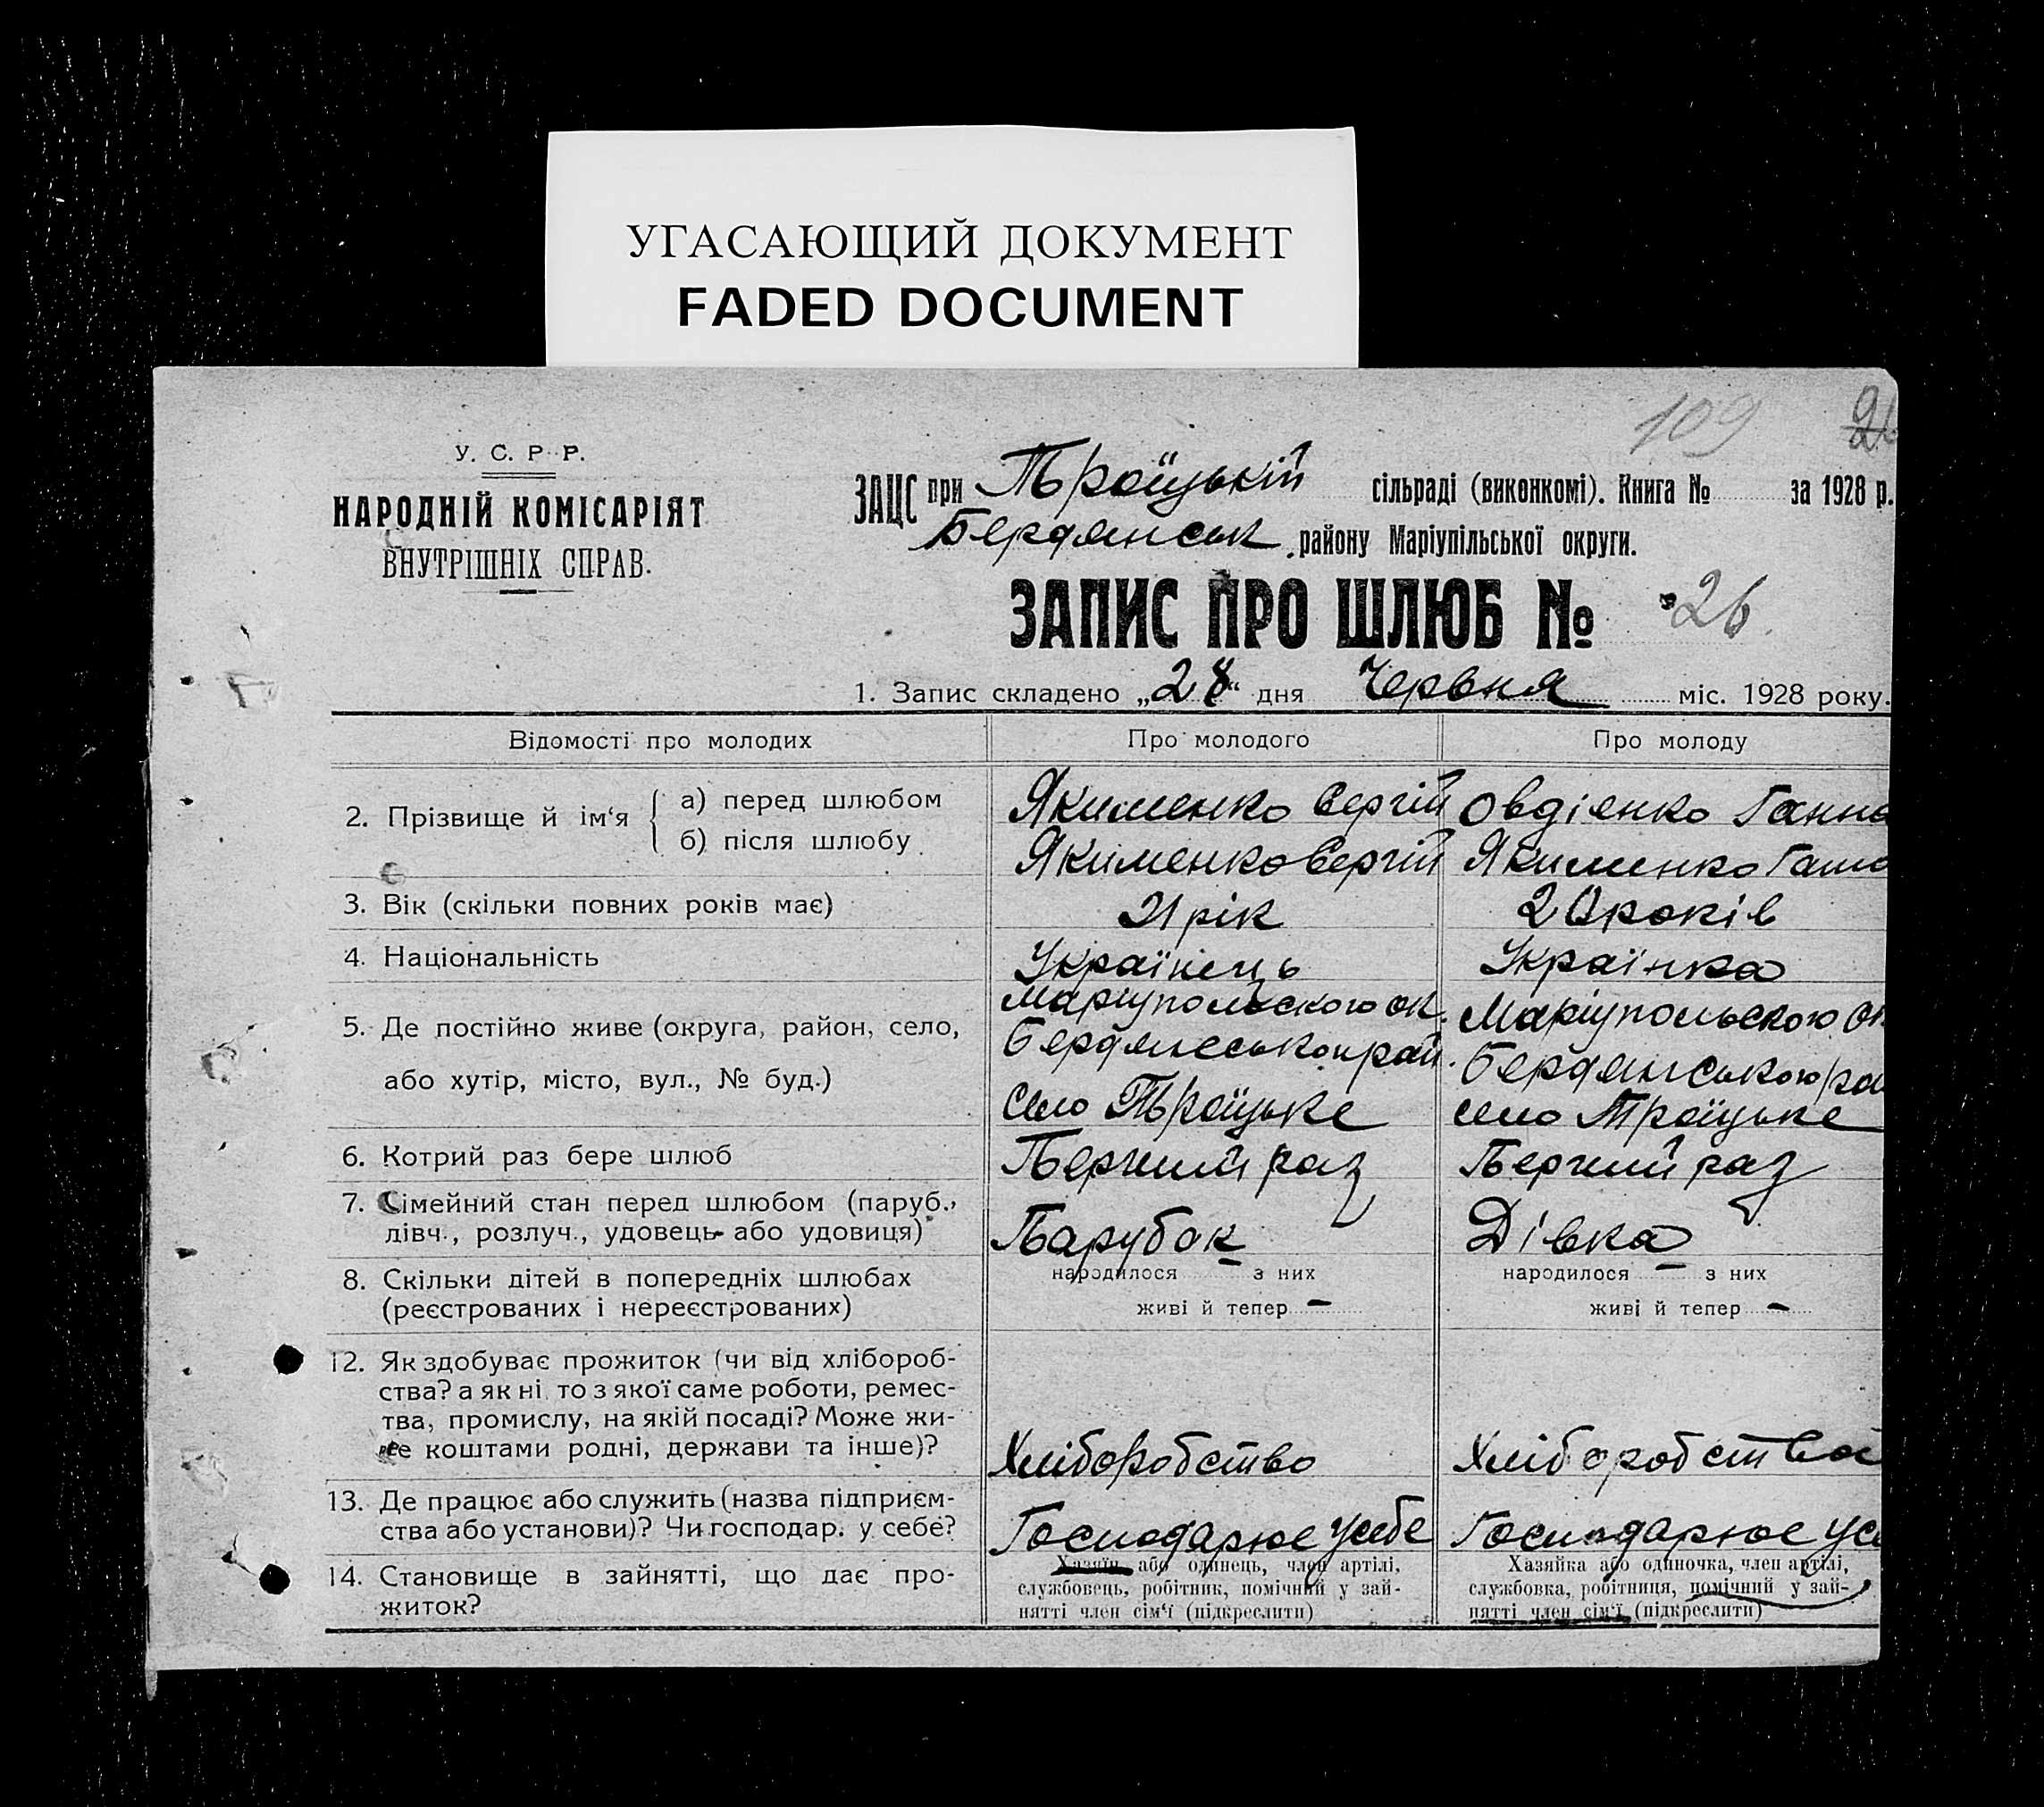 УГАСАЮЩИЙ ДОКУМЕНТ
FADED DOCUMENT
109
У. С. Р. Р.
НАРОДНІЙ КОМІСАРІЯТ
ВНУТРІШНІХ СПРАВ.
ЗАЦС при Троїцькій сільраді (виконкомі). Книга № за 1928 р.
Бердянськ. району Маріупільської округи.
ЗАПИС ПРО ШЛЮБ № 26
1. Запис складено „28“ дня Червня міс. 1928 року.
Відомості про молодих Про молодого Про молоду
2. Прізвище й ім‘я а) перед шлюбом Якименко Сергій Овдієнко Ганна
б) після шлюбу Якименко Сергій Якименко
3. Вік (скільки повних років має) 21 рік 20 років
4. Національність Українець Українка
5. Де постійно живе (округа, район, село, або хутір, місто, вул., № буд.)
Маріупольского ок. Бердянського рай. село Троїцьке
Маріупольского ок. Бердянського ра село Троїцьке
6. Котрий раз бере шлюб Перший раз Перший раз
7. Сімейний стан перед шлюбом (паруб., дівч., розлуч., удовець або удовиця) Парубок Дівка
8. Скільки дітей в попередніх шлюбах (реєстрованих і нереєстрованих)
народилося — з них живі й тепер —
народилося — з них живі й тепер —
12. Як здобуває прожиток (чи від хлібороб-
ства? а як ні, то з якої саме роботи, ремес-
тва, промислу, на якій посаді? Може жи-
ве коштами родні, держави та інше)? Хліборобство Хліборобство
13. Де працює або служить (назва підприєм-
ства або установи)? Чи господар. у себе? Господарює у себе Господарює у се
14. Становище в зайнятті, що дає про-
житок?
Хазяїн або одинець, член артілі,
службовець, робітник, помічний у зай-
нятті член сім‘ї (підкреслити)
Хазяйка або одиночка, член артілі,
службовка, робітниця, помічний у зай-
нятті член сім‘ї (підкреслити)